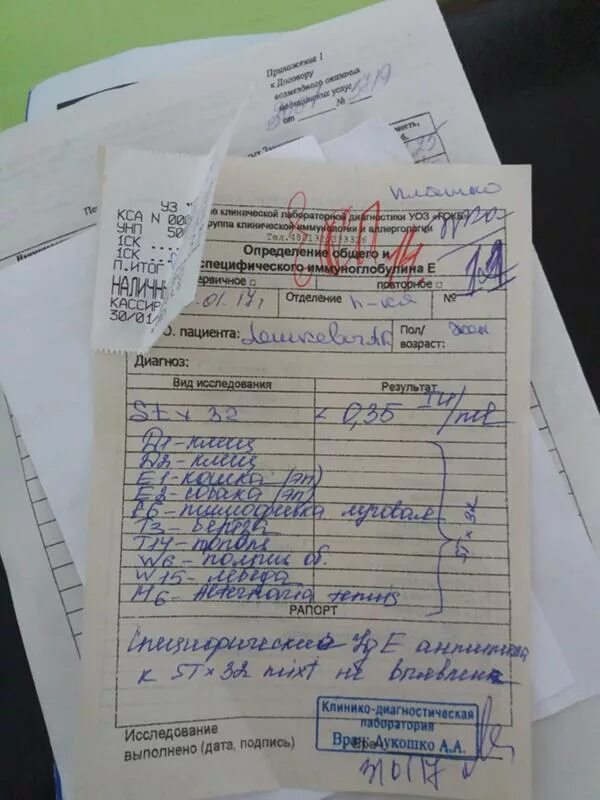 Приложение 1
к Договору
возмездного оказания
медицинских услуг
от № 
УЗ "
КСА N 000
УНП 50
1СК ...
1СК ...
П.ИТОГ
НАЛИЧН
КАССИР
30/01/
платно
клинической лабораторной диагностики УОЗ «ГОКБ»
группа клинической иммунологии и аллергологии
Определение общего и
специфического иммуноглобулина Е
первичное □ повторное □
.01.17г. Отделение п-ка №
О. пациента: Дашкевич Пол/ жен
возраст:
Диагноз:
Вид исследования Результат
STx 32 < 0,35 IU/ml
D1 - клещ
D2 - клещ
E1 - кошка (эп)
E2 - собака (эп)
G6 - тимофеевка луговая
T3 - береза
T14 - тополь
W6 - полынь об.
W15 - лебеда
M6 - Alternaria tenuis
STx 32
РАПОРТ
Специфические Ig E антитела
к STx 32 mixt не выявлены
Исследование
выполнено (дата, подпись)
Клинико-диагностическая
лаборатория
Врач Лукошко А.А.